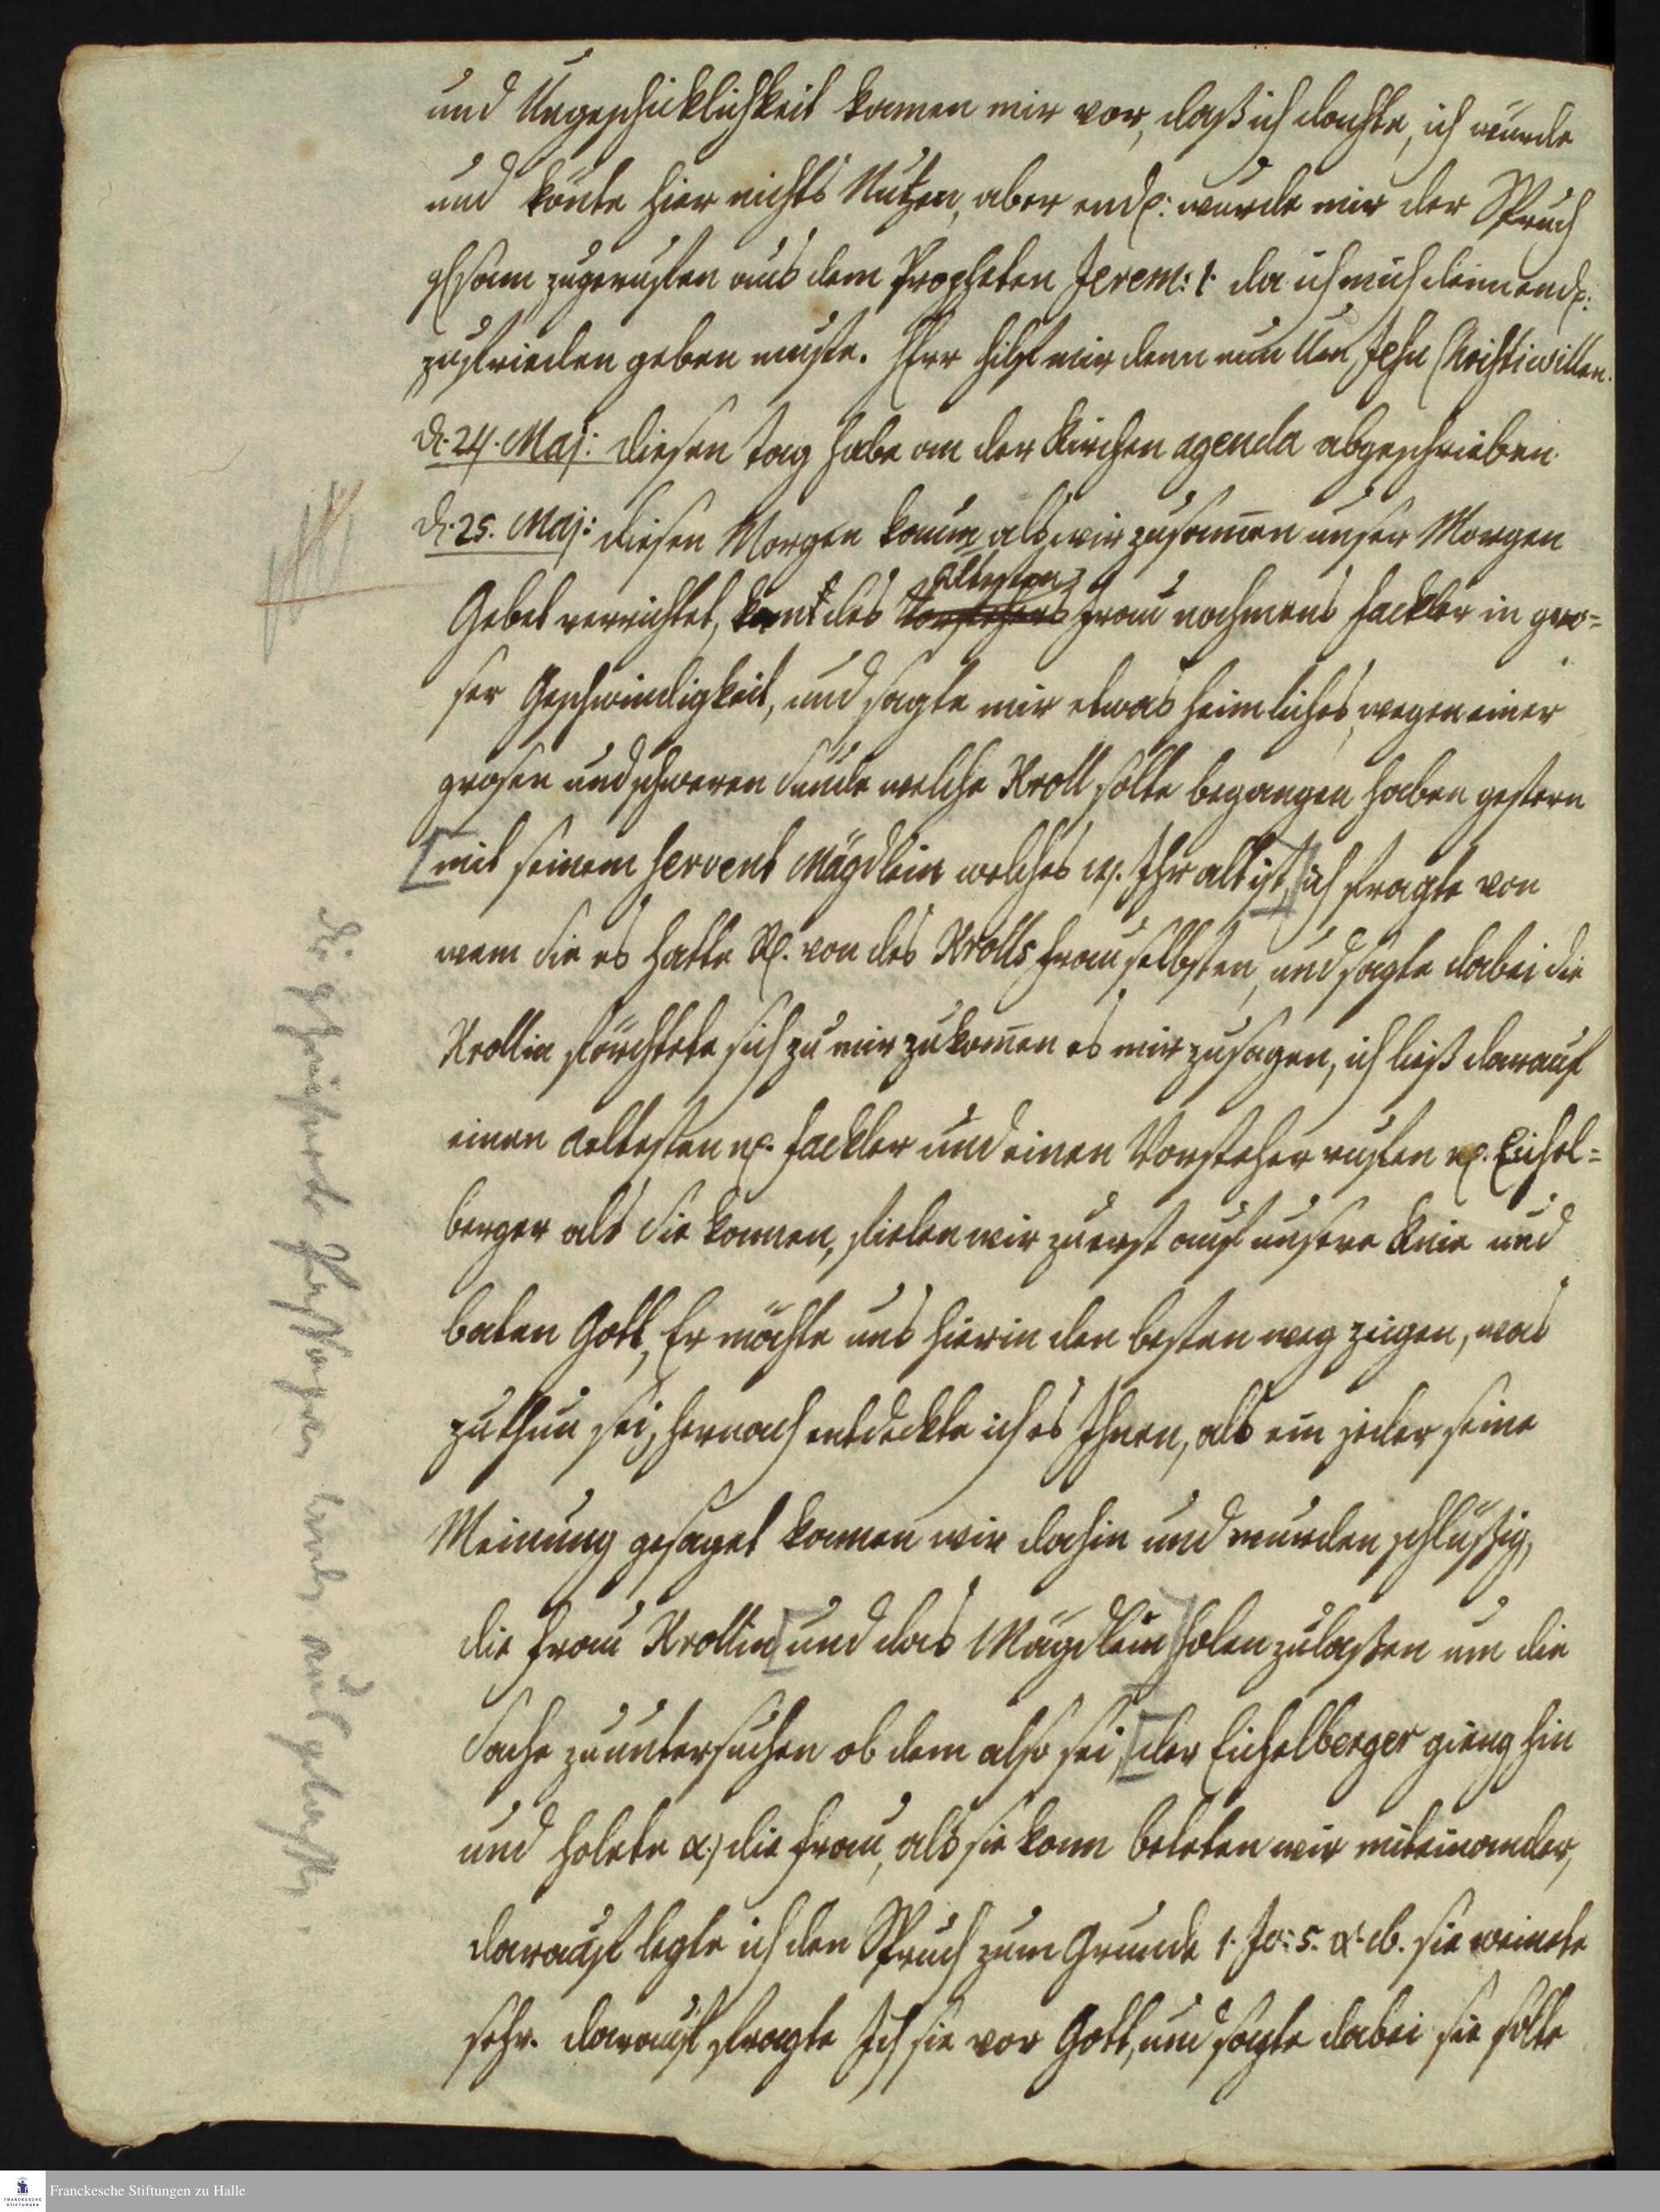 und Ungeschicklichkeit kamen mir vor, daß ich dachte, ich würde
und könte hier nichts Nutzen, aber endl: wurde mir der Spruch
zugeruffen aus dem Propheten Jerem: 1. da ich mich denn endl:
zufrieden geben muste. HErr hilf mir denn nun Um Jesu Christi willen.
d. 24. Maj: diesen tag habe an der Kirchen agenda abgeschrieben.
d. 25. Maj: diesen Morgen kaum als wir zusam̅en unser Morgen
Gebet verrichtet, kamt des Vorstehers ältesten Frau nahmens Fackler in gro=
ser Geschwindigkeit, und sagte mir etwas heimliches, wegen einer
grosen und schweren Sünde welche Kroll solte begangen haben gestern
[mit seinem Servent Mägdlein welches Jhr alt ist,] ich fragte von
wem sie es hatte Rp. von des Krolls Frau selbsten, und sagte dabei die
Krollin förchtete sich zu mir zu kom̅en es mir zusagen, ich ließ darauf
einen aeltesten nl. Fackler und einen Vorsteher ruffen nl. Eichel=
berger als Sie kamen, fielen wir zuerst auf unsere Knie und
baten Gott, Er möchte uns hierin den besten weg zeigen, was
zuthun sei, hernach entdeckte ich es Ihnen, als ein jeder seine
Meinung gesaget kamen wir dahin und wurden schlüßig,
die Frau Krollin [und das Mägdlein] holen zulaßen um die
Sache zuuntersuchen ob dem also sei, [der Eichelberger gieng hin
und holete α) die Frau, als sie kam beteten wir miteinander,
darauf legte ich den Spruch zum Grunde 1. Jo: 5. sie weinete
sehr. darauf fragte Ich sie vor Gott, und sagte dabei sie solte
Franckesche Stiftungen zu Halle
FRANCKESCHE STIFTUNGEN